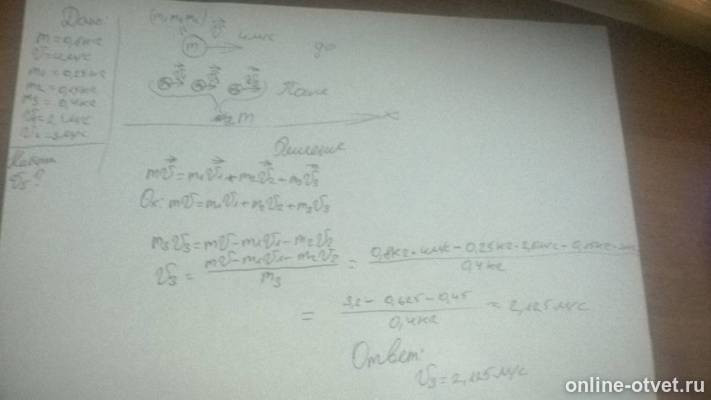 Дано
m = 0,8кг
m₁ = 0,25кг
m₃ = 0,4кг
Найти
v₃?
m
4м/с
до
После
Решение
mv⃗ = m₁v⃗₁ + m₂v⃗₂ + m₃v⃗₃
Ox: mv = m₁v₁ + m₂v₂ + m₃v₃
m₃v₃ = mv − m₁v₁ − m₂v₂
v₃ = mv − m₁v₁ − m₂v₂ / m₃ = 0,8кг · 4м/с − 0,25кг ·
0,4кг
= 3,2 − 0,625 − 0,45 / 0,4кг = 2,125 м/с
Ответ:
v₃ = 2,125 м/с
online-otvet.ru